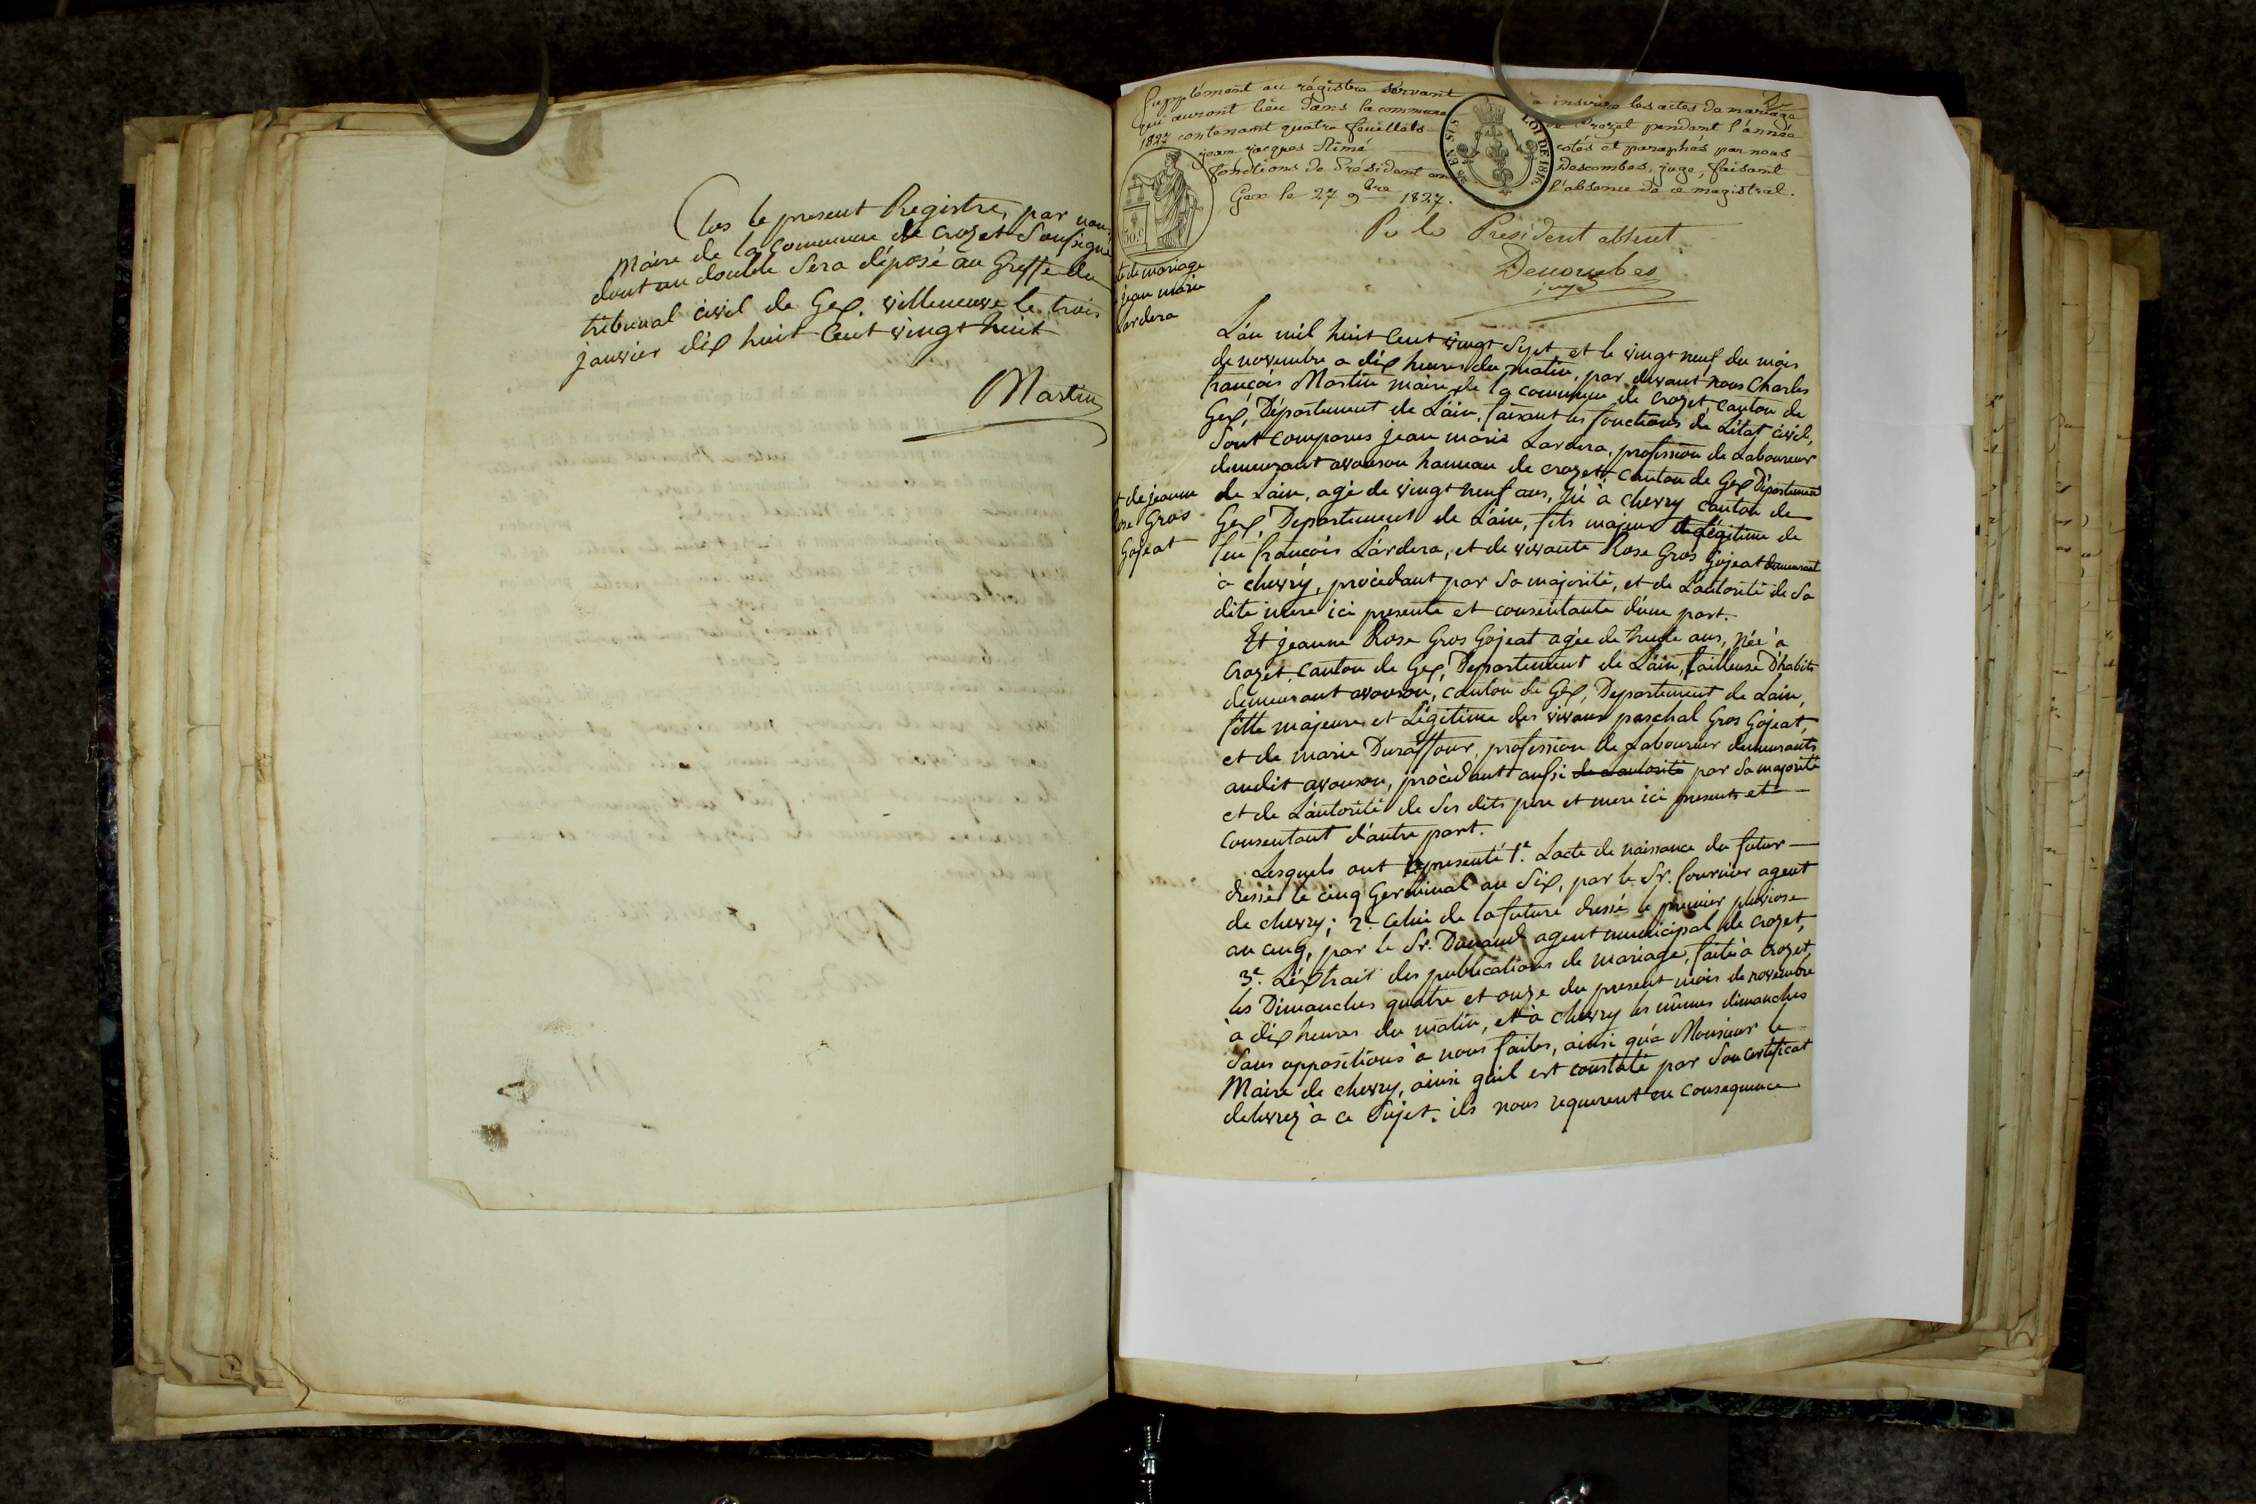 Clos le present Registre, par nous
Maire de la Commune de Crozet Soussigné
dont un double Sera déposé au Greffe du
tribunal civil de Gex. villeneuve le trois
janvier dix huit Cent vingt huit
Martin
Supplément au régistre servant à inscrire les actes de mariage
qui auront lieu dans la commune de Crozet pendant l'année
1827 contenant quatre feuillets cotés et paraphés par nous
jean jacques Aimé Descombes, juge, faisant
fonctions de Président en l'absence de ce magistrat.
Gex le 27 9bre 1827.
Pr le Président absent
Descombes
juge
EN SUS
LOI DE 1816
te de mariage
jean marie
Lardera
t de jeanne
Rose Gros
Gojeat
L'an mil huit Cent vingt Sept et le vingt neuf du mois
de novembre a dix heures du matin, par devant nous Charles
françois Martin maire de la commune de Crozet, canton de
Gex, Département de L'ain, faisant les fonctions de L'état civil,
Sont comparus jean marie Lardera, profession de Laboureur
demeurant avouson hameau de crozet, canton de Gex Département
de L'ain, agé de vingt neuf ans, né à chevry canton de
Gex, Département de L'ain, fils majeur et légitime de
feu françois Lardera, et de vivante Rose Gros Gojeat demeurant
à chevry, procèdant par Sa majorité, et de L'autorité de Sa
dite mere ici presente et consentante d'une part.
Et jeanne Rose Gros Gojeat agée de trente ans, née à
Crozet, canton de Gex, Département de L'ain, tailleuse D'habits
demeurant avouson, canton de Gex, Departement de L'ain,
fille majeure et Légitime des vivans paschal Gros Gojeat,
et de marie Duraffour, profession de Laboureur demeurants
audit avouson, procèdant aussi de L'autorité par Sa majorité
et de L'autorité de Ses dits pere et mere ici presents et
Consentant d'autre part.
Lesquels ont représenté 1e. L'acte de naissance du futur
dressé le cinq Germinal an Six, par le Sr. fournier agent
de chevry; 2e. celui de la future dressé le premier pluviose
an cinq, par le Sr. Durand agent municipal de crozet,
3e. L'éxtrait des publications de mariage, faite à Crozet,
les Dimanches quatre et onze du present mois de novembre
à dix heures du matin, et à chevry les mêmes dimanches
Sans oppositions à nous faites, ainsi qu'à Monsieur le
Maire de chevry, ainsi qu'il est constaté par Son certificat
delivrez à ce Sujet. ils nous requerent en consequence